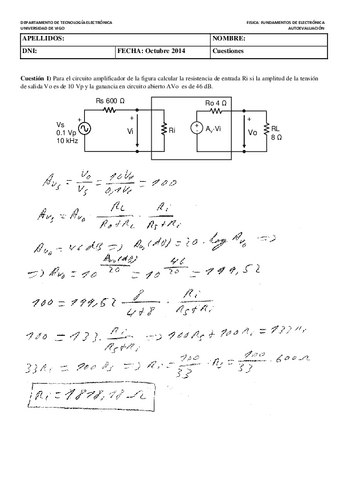 DEPARTAMENTO DE TECNOLOGÍA ELECTRÓNICA
UNIVERSIDAD DE VIGO
FISICA FUNDAMENTOS DE ELECTRÓNICA
AUTOEVALUACIÓN
APELLIDOS: NOMBRE:
DNI: FECHA: Octubre 2014 Cuestiones
Cuestión 1) Para el circuito amplificador de la figura calcular la resistencia de entrada Ri si la amplitud de la tensión
de salida Vo es de 10 Vp y la ganancia en circuito abierto AVo es de 46 dB.
Rs 600 Ω
Ro 4 Ω
Vs
0.1 Vp
10 kHz
+
Vi
Ri
+
Av·Vi
+
Vo
RL
8 Ω
Avs = Vo/Vs = 10Vp/0,1Vp = 100
Avs = Avo · RL/(Ro+RL) · Ri/(Rs+Ri)
Avo = 46dB => Avo(dB) = 20·log Avo =>
=> Avo = 10^(Avo(dB)/20) = 10^(46/20) = 199,52
100 = 199,52 · 8/(4+8) · Ri/(Rs+Ri)
100 = 133 · Ri/(Rs+Ri) => 100Rs+100Ri = 133Ri
33Ri = 100Rs => Ri = 100/33 · Rs = 100/33 · 600Ω
Ri = 1818,18 Ω